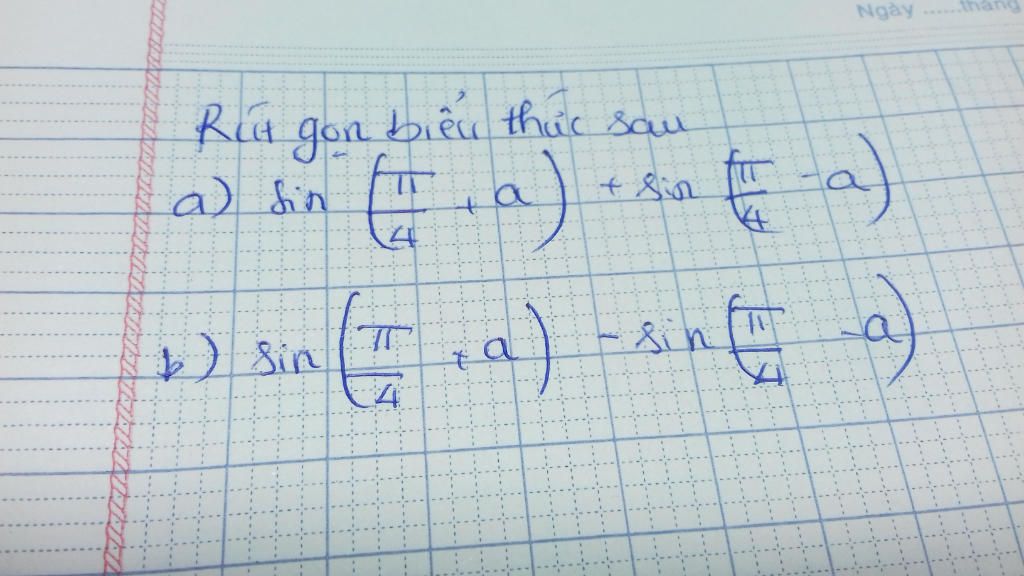 Ngày ......tháng
Rút gọn biểu thức sau
a) sin (π/4 + a) + sin (π/4 - a)
b) sin (π/4 + a) - sin (π/4 - a)